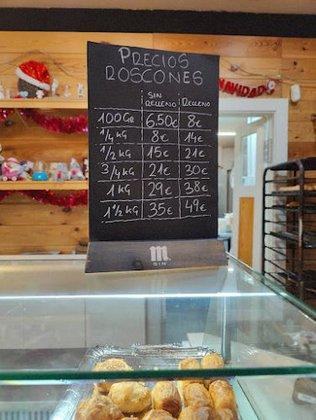 PRECIOS
ROSCONES
SIN RELLENO RELLENO
100GR 6.50€ 8€
1/4 KG 8€ 14€
1/2 KG 15€ 21€
3/4 KG 21€ 30€
1 KG 29€ 38€
1 1/2 KG 35€ 49€
m
NAVIDAD